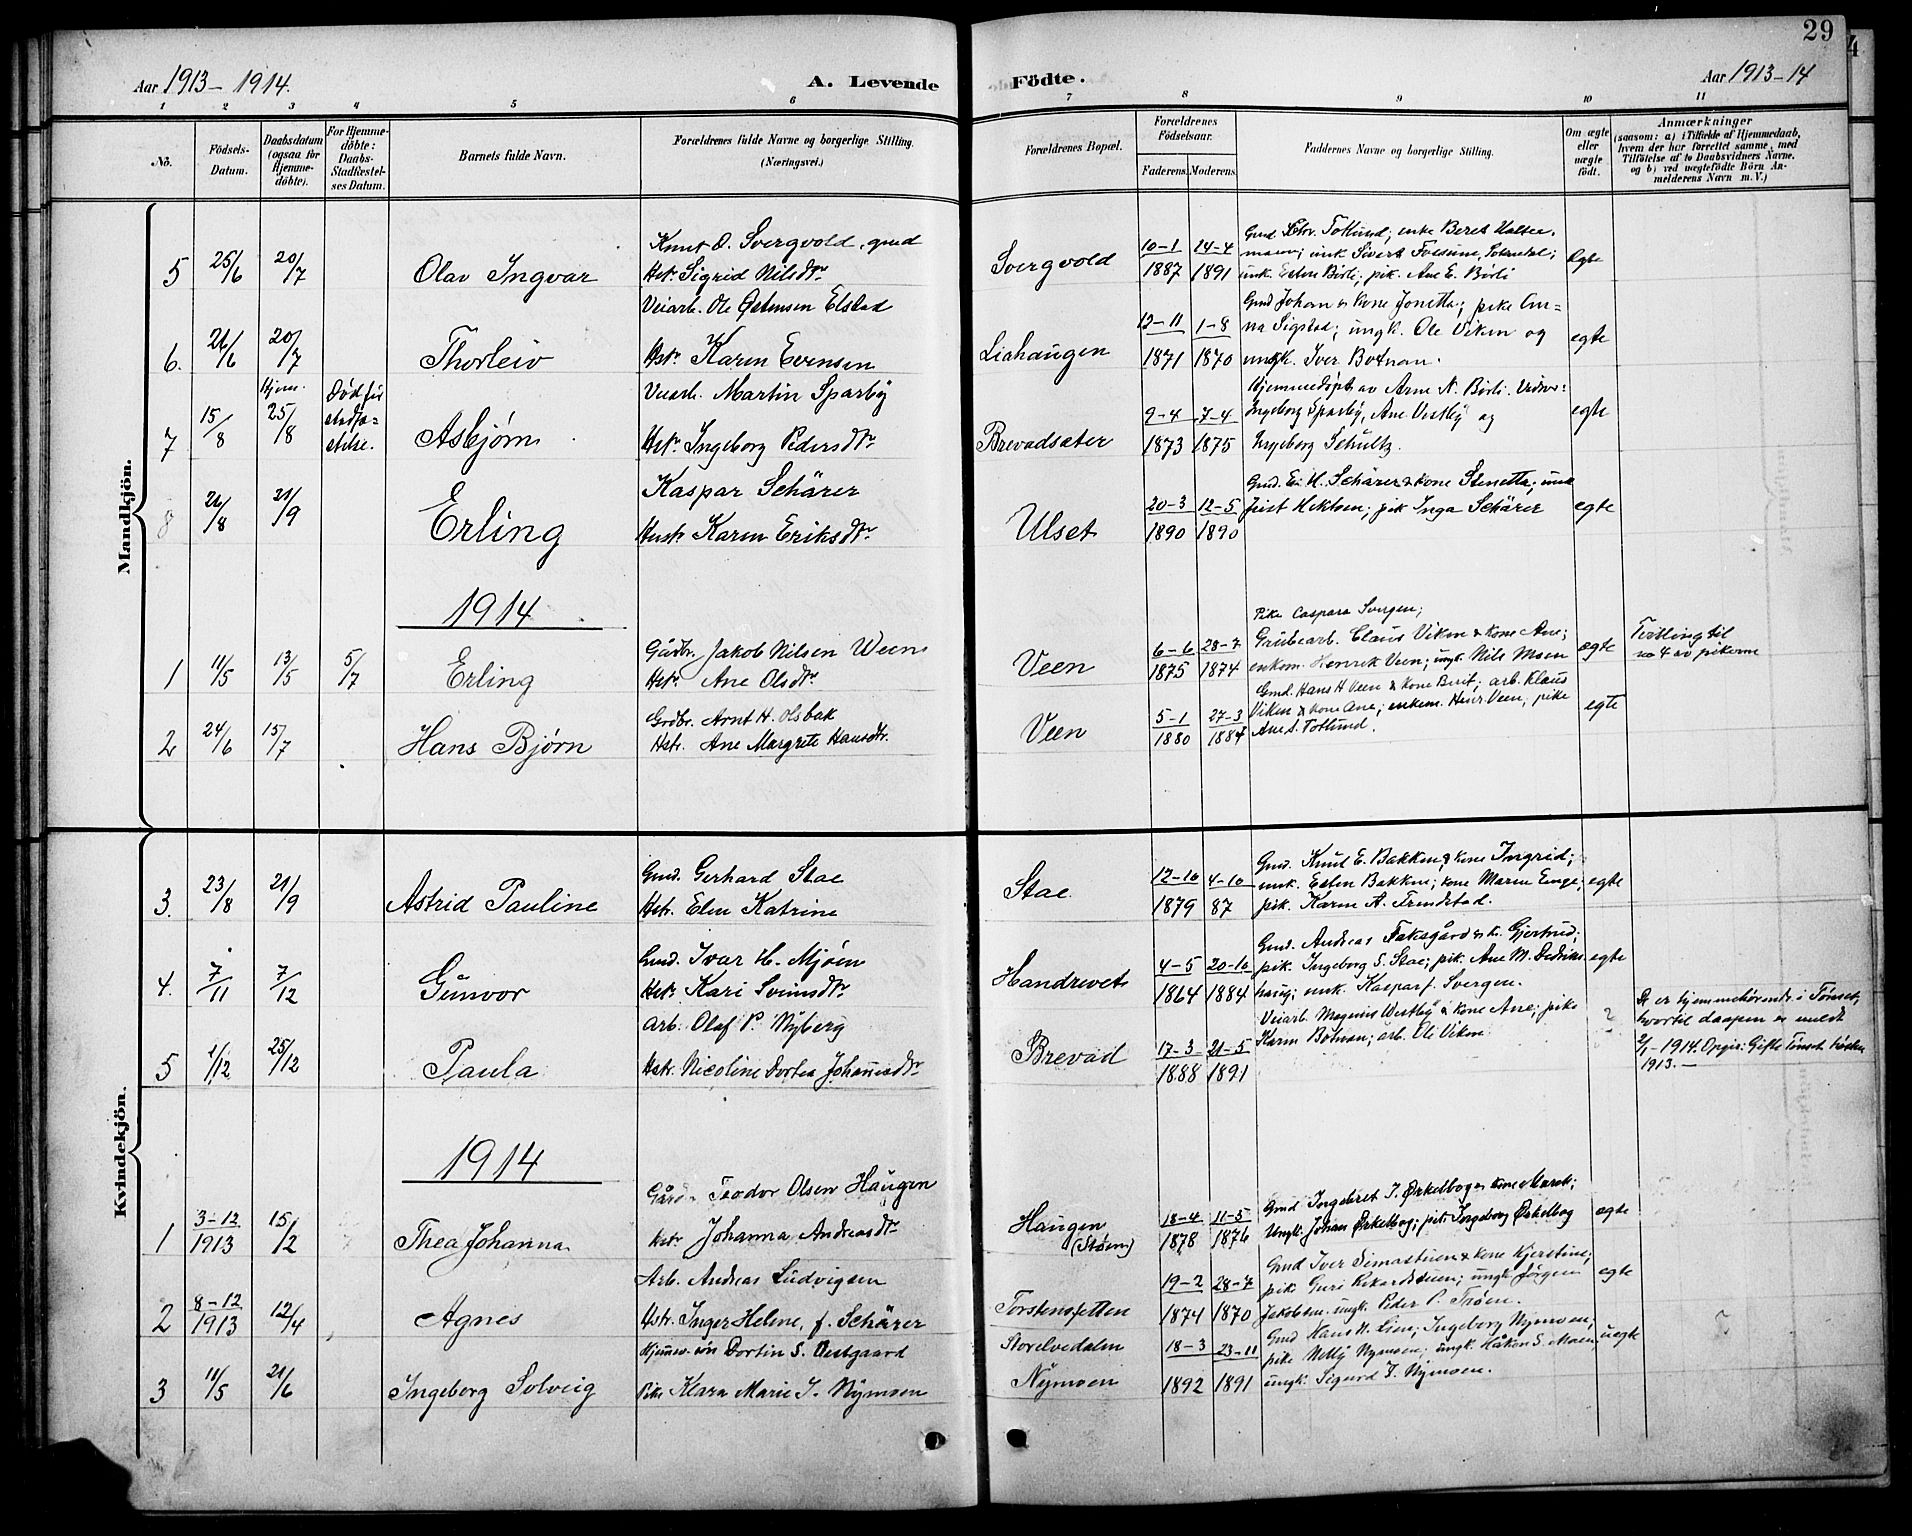 29
Aar 1913-1914.
A. Levende
Födte.
Aar 1913-14
1 2 3 4 5 6 7 8 9 10 11
No.
Födsels-
Datum.
Daabsdatum
(ogsaa for
Hjemme-
döbte).
For Hjemme-
döbte:
Daabs-
Stadfæstel-
ses Datum.
Barnets fulde Navn.
Forældrenes fulde Navne og borgerlige Stilling.
(Næringsvei.)
Forældrenes Bopæl.
Forældrenes
Födselsaar.
Faderens.
Moderens.
Faddernes Navne og borgerlige Stilling.
Om ægte
eller
uægte
födt.
Anmærkninger
(saasom: a) i Tilfælde af Hjemmedaab,
hvem der har forrettet samme, med
Tilföielse af to Daabsvidners Navne,
og b) ved uægtefödte Börn An-
melderens Navn m. V.)
Mandkjön.
5 25/6 20/7 Olav Ingvar
Knut O. Svergvold, gmd
Hstr. Sigrid Nilsdtr.
Svergvold
10-1 1887 24-4 1891
Totlund; enke Beret
unk. Esten Birli; pik. Ane E. Birli
Egte
6. 26/6 20/7 Thorleiv
Veiarb. Ole Østensen Elstad
Hstr. Karen Evensen
Liahaugen
12-11 1871 1-8 1870
Gmd Johan & Kone Jonetta; pike An-
na Sigstad; ungk. Ole Viken og
ungk. Iver Botnan.
egte
7 15/8 Hjem. 25/8 Død før stadfæ-
stelse.
Asbjørn
Veiarb. Martin Sparby
Hstr. Ingeborg Pedersdtr.
Brevadsæter
9-4 1873 7-4 1875
Hjemmedøpt av Arne N. Birli.
Ingeborg Sparby, Ane Vestby og
Ingeborg Schultz.
egte
8 26/8 21/9 Erling
Kaspar Schärer
Hustr. Karen Eriksdtr.
Ulset
20-3 1890 12-5 1890
Gmd. H. Schärer & Kone Stenetta; unk
pik Inga Schärer
egte
1914
1 11/5 13/5 5/7 Erling
Gårdbr. Jakob Nilsen Ween
Hstr. Ane Olsdtr.
Veen
6-6 1875 28-7 1874
Pike Caspara Svergen;
Grubearb. Claus Viken & Kone Ane;
enkem. Henrik Veen; ungk. Nils Moen
ægte
Tvilling til
no 4 av pikerne
2 24/6 15/7 Hans Bjørn
Grdbr. Arnt H. Olsbak
Hstr. Ane Margrete Hansdtr.
Veen
5-1 1880 27-3 1884
Gmd. Hans H Veen & Kone Berit; arb. Klaus
Viken & Kone Ane; enkem. Henr. Veen, pike
Ane S. Totlund.
egte
Kvindekjön.
3. 23/8 21/9 Astrid Pauline
Gmd. Gerhard Stae
Hstr. Elen Katrine
Stae
12-10 1879 4-10 87
Gmd. Knut E. Bakken, & Kone Ingrid;
unk. Esten Bakken; Kone Maren Enge;
pik. Karen A. Trondstad.
egte
4. 7/11 7/12 Gunvor
Gmd. Ivar H. Mjøen
Hstr. Kari Svensdtr.
Handrevet
4-5 1864 20-10 1884
Gmd. Andreas Faksgård & k. Gjertrud;
pik. Ingeborg S. Stae; pik. Ane M. Dedrik-
haug; unk. Kaspar J. Svergen.
egte
5 1/12 25/12 Paula
Arb. Olaf P. Nyberg
Hstr. Nicoline Dortea Johannesdtr.
Brevad
17-3 1888 21-5 1891
Veiarb. Magnus Vestby & Kone Ane; pike
Karen Botnan; arb. Ole Viken
?
De er hjemmehørende i Tønset,
hvortil daapen er meldt
2/1-1914. Opgir: Gifte Tønset høsten
1913.—
1914
1 3-12 1913 15/2 Thea Johanna
Gård. Teodor Olsen Haugen
Hstr. Johanna Andreasdtr.
Haugen
(Støen)
18-4 1878 11-5 1876
Gmd Ingebret J. Ørkelbog & Kone Maret;
Ungk. Johan Ørkelbog; pik. Ingeborg Ørkelbog
egte
2 8-12 1913 12/4 Agnes
Arb. Andreas Ludvigsen
Hstr. Inger Helene, f. Schärer
Torstensletten
19-2 1874 28-7 1870
Gmd Iver Simastuen & Kone Kjerstine;
pike Guri Rikardstuen; ungk. Jørgen
Jakobsen. ungk. Peder P. Trøen.
egte
3 11/5 21/6 Ingeborg Solveig
Dortin S. Oestgaard
Pike Klara Marie J. Nymoen
Storelvedalen
Nymoen
18-3 1892 23-11 1891
Gmd Hans N. Lien; Ingeborg Nymoen;
pike Nelly Nymoen; ungk. Håkon S. Moen
ungk. Sigurd J. Nymoen.
uegte